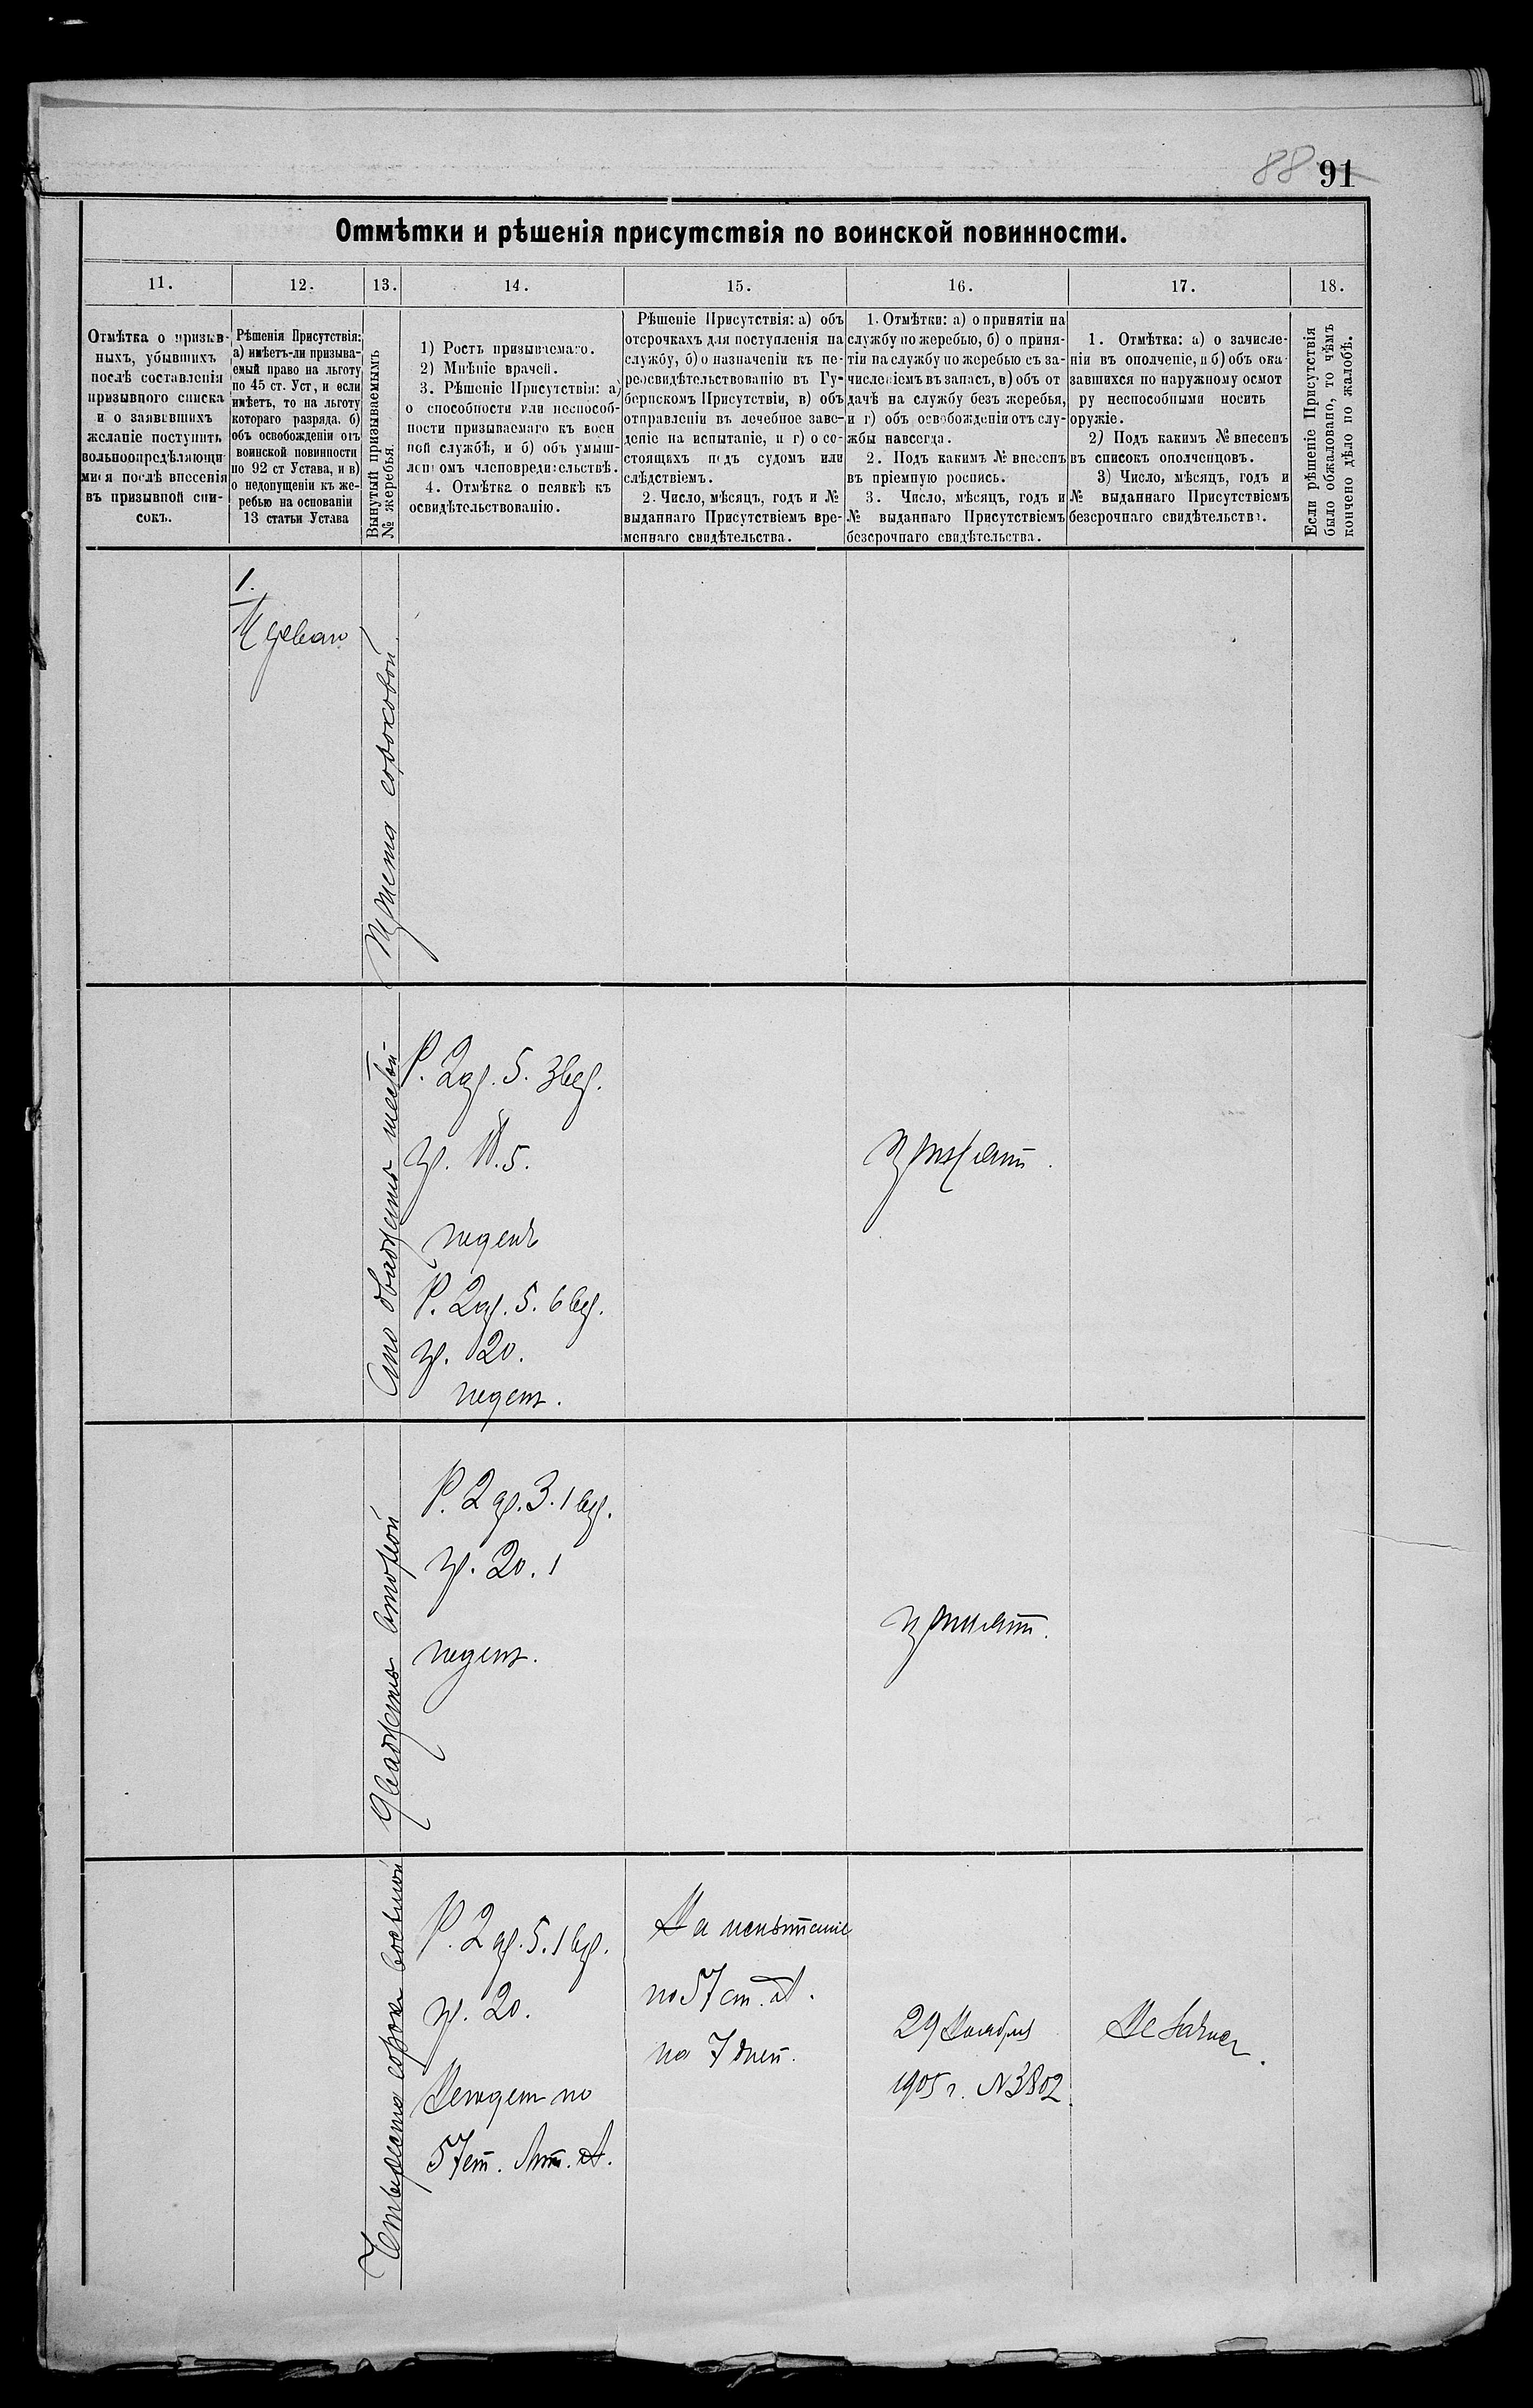 88 91
Отмѣтки и рѣшенія присутствія по воинской повинности.
11.
12.
13.
14.
15.
16.
17.
18.
Отмѣтка о призыв-
ныхъ, убывшихъ
послѣ составленія
призывного списка
и о заявившихъ
желаніе поступить
вольноопредѣляющи-
мися послѣ внесенія
въ призывной спи-
сокъ.
Рѣшенія Присутствія:
а) имѣетъ-ли призыва-
емый право на льготу
по 45 ст. Уст, и если
имѣетъ, то на льготу
котораго разряда. б)
объ освобожденіи отъ
воинской повинности
по 92 ст Устава, и в)
о недопущеніи къ же-
ребью на основаніи
13 статьи Устава
Вынутый призываемымъ
№ жеребья.
1) Ростъ призываемаго.
2) Мнѣніе врачей.
3. Рѣшеніе Присутствія: а)
о способности или неспособ-
ности призываемаго къ воен
ной службѣ, и б) объ умыш-
ленномъ членовредительствѣ.
4. Отмѣтка о неявкѣ къ
освидѣтельствованію.
Рѣшеніе Присутствія: а) объ
отсрочкахъ для поступленія на
службу, б) о назначеніи къ пе-
реосвидѣтельствованію въ Гу-
бернскомъ Присутствіи, в) объ
отправленіи въ лечебное заве-
деніе на испытаніе, и г) о со-
стоящихъ подъ судомъ или
слѣдствіемъ.
2. Число, мѣсяцъ, годъ и №
выданнаго Присутствіемъ вре-
меннаго свидѣтельства.
1. Отмѣтки: а) о принятіи на
службу по жеребью, б) о приня-
тіи на службу по жеребью съ за-
численіемъ въ запасъ, в) объ от
дачѣ на службу безъ жеребья,
и г) объ освобожденіи отъ слу-
жбы навсегда.
2. Подъ какимъ № внесенъ
въ пріемную роспись.
3. Число, мѣсяцъ, годъ и
№ выданнаго Присутствіемъ
безсрочнаго свидѣтельства.
1. Отмѣтка: а) о зачисле-
ніи въ ополченіе, и б) объ ока-
завшихся по наружному осмот
ру неспособными носить
оружіе.
2) Подъ какимъ № внесенъ
въ списокъ ополченцовъ.
3) Число, мѣсяцъ, годъ и
№ выданнаго Присутствіемъ
безсрочнаго свидѣтельства.
Если рѣшеніе Присутствія
было обжаловано, то чѣмъ
кончено дѣло по жалобѣ.
1.
Триста сороковой
Сто двадцать шестой
Р. 2 ар. 5. 3 вер.
гр. 5.
годенъ
Р. 2 ар. 5. 6 вер.
гр. 20.
годенъ.
Принятъ.
Двадцать второй
Р. 2 ар. 3. 1 вер.
гр. 20. 1
годенъ.
Принятъ.
Четыреста сорокъ восьмой
Р. 2 ар. 5. 1 вер.
гр. 20.
Негоденъ по
57 ст. Лит. А.
На испытаніе
по 57 ст. А.
на 7 дней.
29 Ноября
1905 г. № 3802.